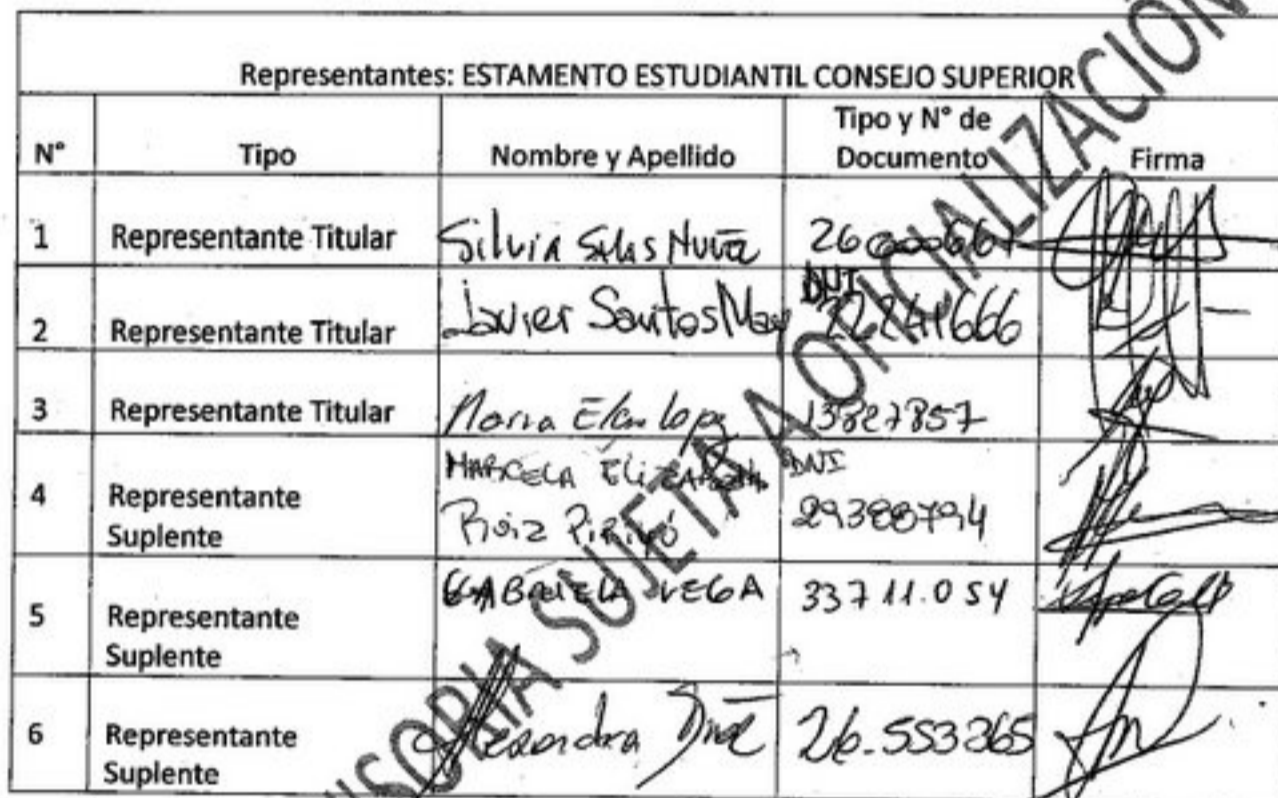 Representantes: ESTAMENTO ESTUDIANTIL CONSEJO SUPERIOR
N° Tipo Nombre y Apellido Tipo y N° de Documento Firma
1 Representante Titular Silvia Salas
2 Representante Titular Javier Santos May DNI
3 Representante Titular Maria 13827857
4 Representante Suplente MARCELA DNI Ruiz 29388794
5 Representante Suplente GABRIELA VEGA 33711.054
6 Representante Suplente 26.553265
SUJETA A OFICIALIZACIÓN